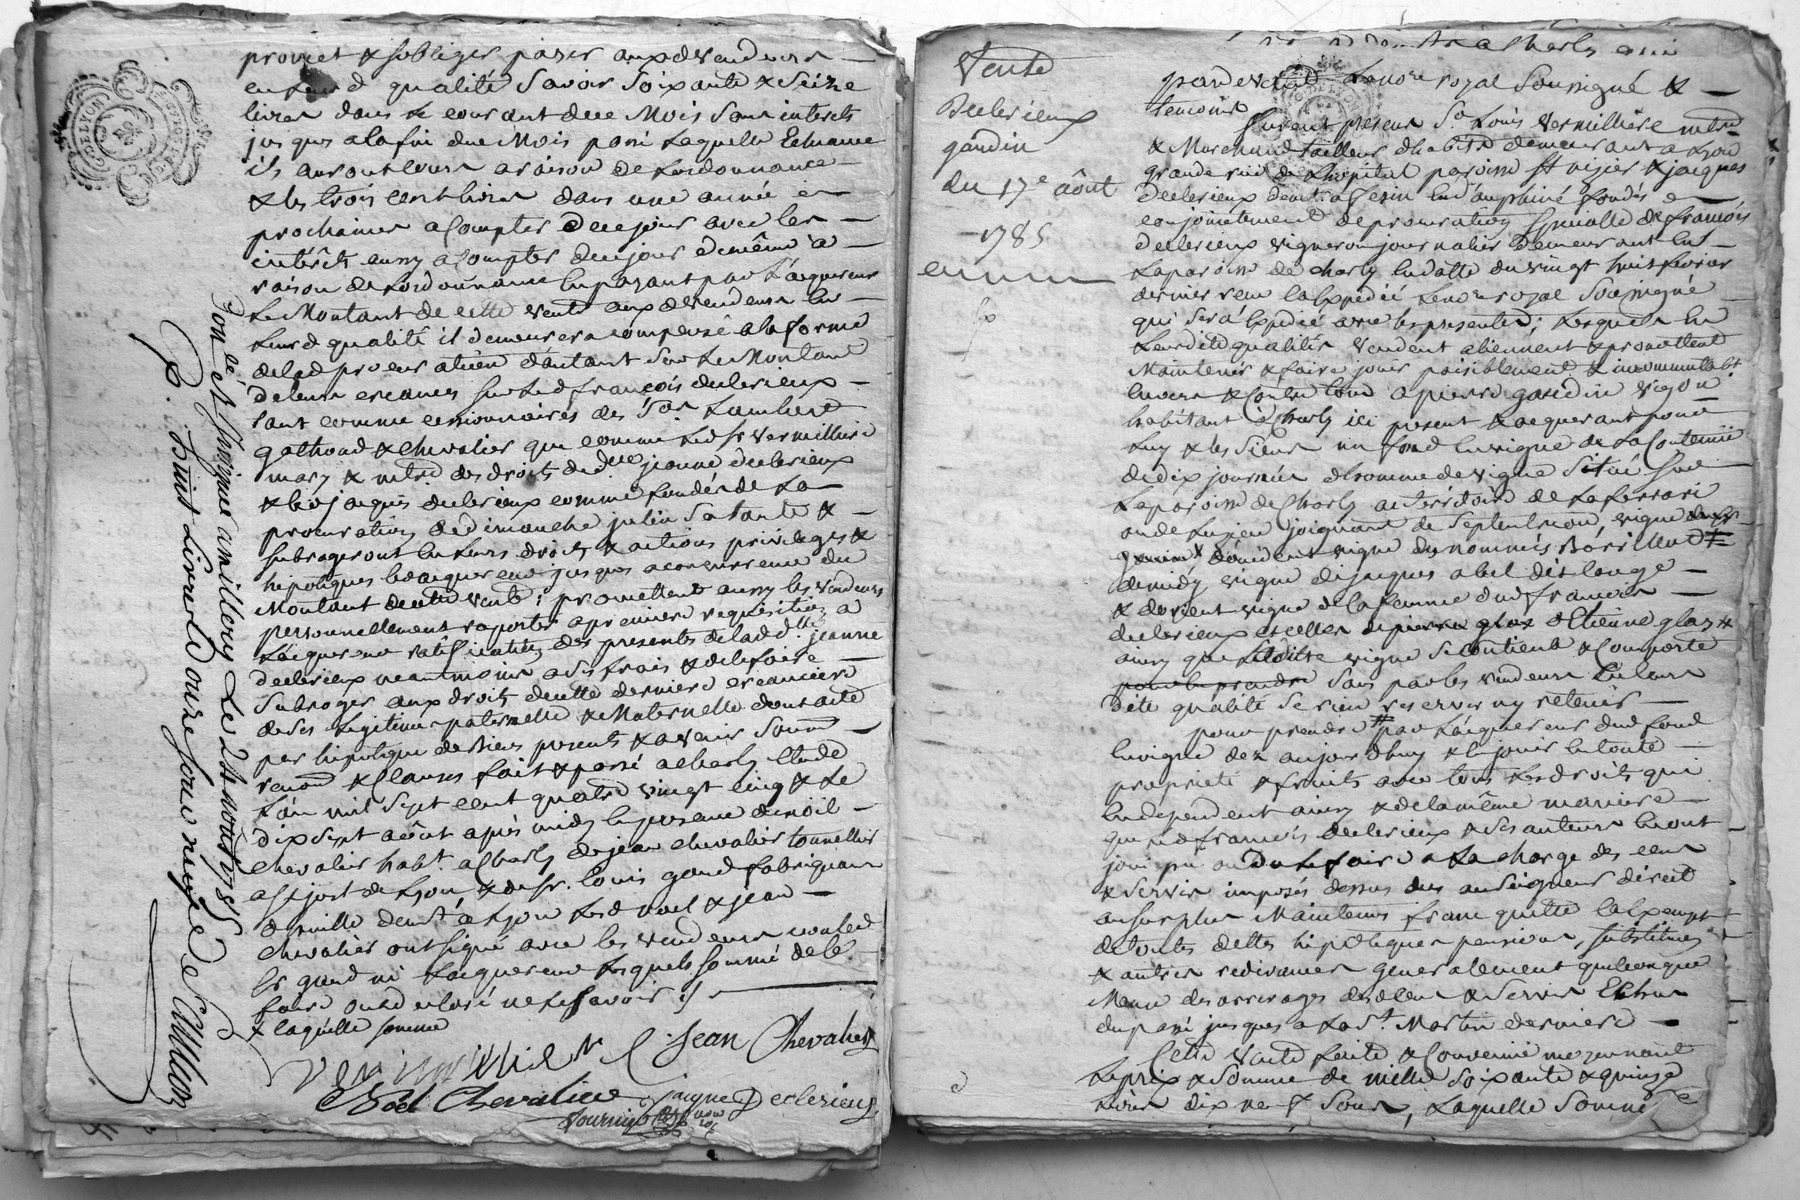 promet & sobliger payer auxd vendeurs
en leurd qualité Savoir Soixante & Seize
livres dans le courant de ce Mois Sans interets
jusques a la fin du Mois passé Laquelle Echeance
ils auront cours a raison de Lordonnance
& les trois cent livres dans une année
prochaine a Compter de ce jour avec les
intérêts aussy a Compter de ce jour de même a
raison de Lordonnance En payant par Lacquereur
Le Montant de cette vente auxd vendeurs En
Leurd qualité il demeurera compensé a la forme
de lad procuration d'autant Sur Le Montant
de leurs creances sur Led françois declerieux
tant comme cessionnaires des Srs Lambert
gathoud & chevalier que comme Led Sr vermilliere
mary & mtre des droits de dlle jeanne declerieux
& led jaques declerieux comme fondé de La
procuration de dimanche julien Sa tante &
subrogeront En Leurs droits & actions privileges &
hipoteques Led acquereur jusques a concurrence du
Montant de cette vente; promettent aussy les vendeurs
personnellement raporter a premiere requisition a
Lacquereur ratification des presentes de lad dlle jeanne
declerieux neantmoins a ses frais & de le faire
Subroger aux droits de cette derniere creanciere
de ses Legitimes paternelle & Maternelle
par hipoteque de Biens presents & avenir
renon & Clauses fait & passé a Charly Etude
L'an mil Sept cent quatre vingt cinq & Le
dix sept août après midy En presence de noël
chevalier habt. a Charly de jean chevalier tonnellier
a St just de Lyon, & de Sr. Louis gand fabriquant
demt à Lyon Led noel & jean
chevalier ont signé avec les vendeurs
Lacquereur Lesquels sommé de le
faire ont declaré ne le Savoir
& laquelle somme
Jean Chevalier
Noël Chevalier
jaque Declerieux
Con.lé et Insinué a millery Le 24 août 1785
R. huit Livres Douze Sous neuf d
Vente
Declerieux
gaudin
du 17e août
1785
pardevant Le nore royal Soussigné &
temoins
furent presens Sr. Louis vermilliere mtre
& Marchand tailleur d'habits demeurant a Lyon
grande rue de Lhopital paroisse St nizier & jaques
declerieux demt. a en dauphiné fondés
conjointement de procuration speciale de françois
declerieux vigneron journalier demeurant En
La paroisse de charly En datte du vingt huit fevrier
dernier reçu Expedié Le nore royal Soussigné
qui sera Expedié avec les presentes; Lesquels En
Leursdites qualités vendent aliennent & promettent
Maintenir & faire jouir paisiblement & incommutablt
Envers & Contre tous a pierre gaudin vigon
habitant à Charly ici present & acquerant pour
Luy & les Siens un fond En vigne de La Contenüe
de dix journées d'homme de vigne Situé Sur
La paroisse de Charly au territoire de
ou de Lu joignant de Septentrion, vigne
d'occident vigne des nommés
de midy vigne de jacques abel
& d'orient vigne de la femme dud françois
declerieux & celles de pierre glas & Etienne glas &
ainsy que Ladite vigne Se Contient & Comporte
pour En prendre Sans par les vendeurs En leurs
dite qualité Se rien reserver ny retenir
pour prendre par Lacquereur dud fond
En vigne dez aujourd'huy & En jouir En toute
propriete & fruits avec tous Les droits qui
En dependent ainsy & de la même maniere
que Led françois declerieux & Ses auteurs En ont
joui pu ou Du Le faire a La charge des cens
& Servis imposés dessus dus au Seigneur direct
au surplus Maintenus franc quitte & Exempt
de toutes dettes hipoteques pensions, substitutions
& autres redevances Generalement quelconques
Meme des arrerages desd cens & Servis Echus
du passé jusques a La St. Martin derniere
Cette vente faite & Convenue moyennant
Le prix & Somme de mille Soixante & quinze
livres dix neuf Sous, Laquelle Somme